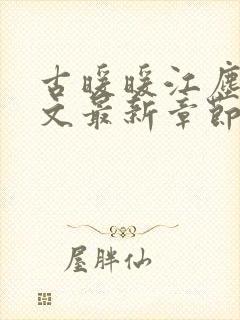 古暖暖江尘
文最新章节
屋胖仙